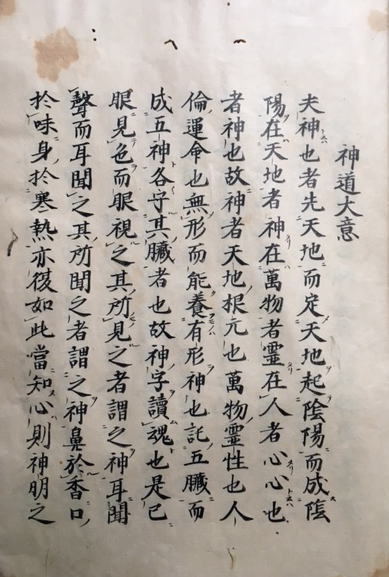 神道大意
夫神也者先天地而定天地起陰陽而成陰
陽在天地者神在萬物者霊在人者心心也
者神也故神者天地根元也萬物霊性也人
倫運命也無形而能養有形神也託五臓而
成五神各守其臓者也故神字讀魂也是已
眼見色而眼視之其所見之者謂之神耳聞
聲而耳聞之其所聞之者謂之神鼻於香口
於味身於寒熱亦復如此當知心則神明之